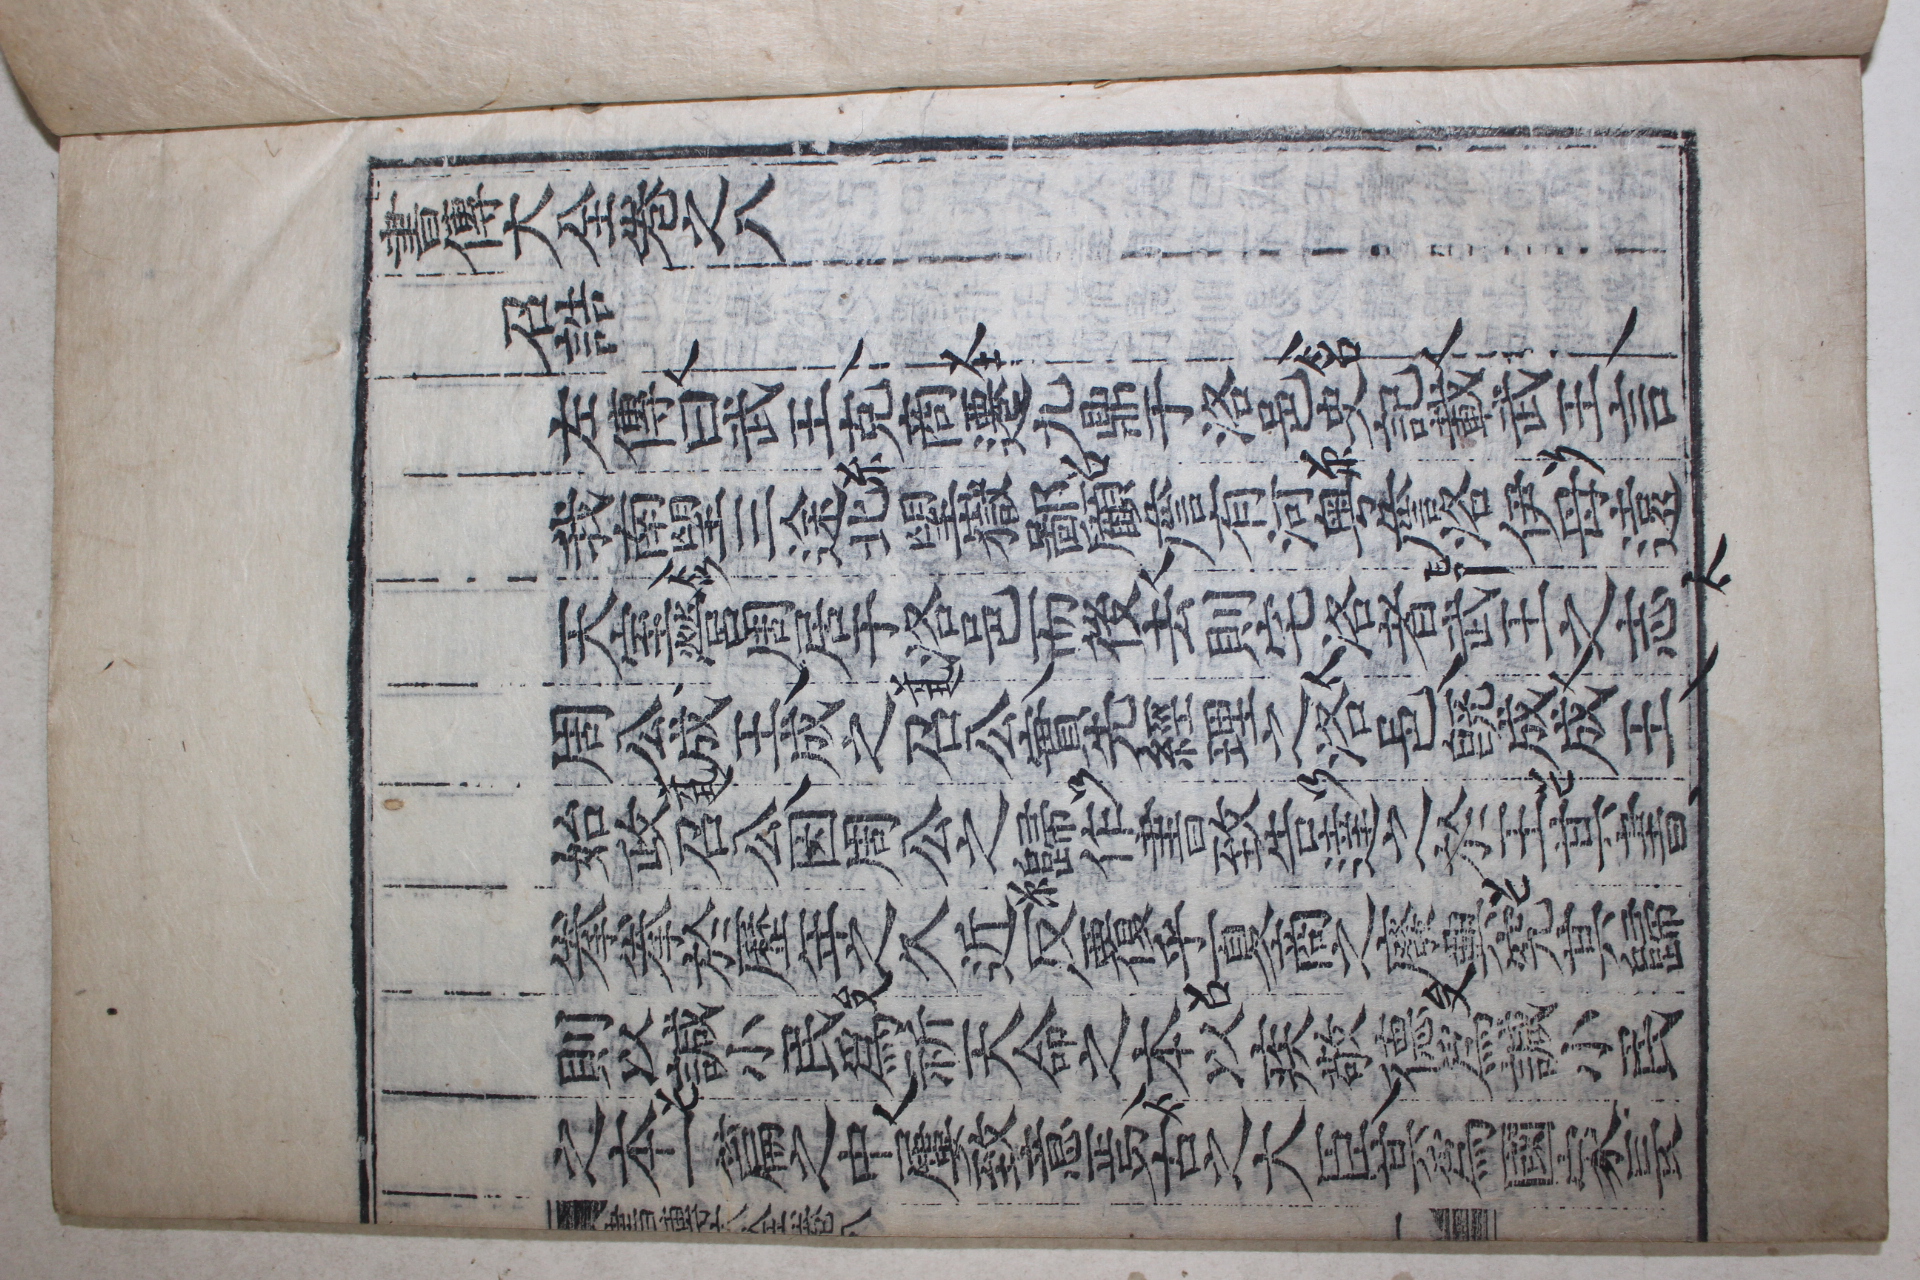 書傳大全卷之八
召誥
左傳曰武王克商遷九鼎于洛邑史記載武王言
我南望三途北望嶽鄙顧詹有河粤詹洛伊毋遠
天室營周居于洛邑而後去則宅洛者武王之志
周公成王成之召公實先經理之洛邑旣成成王
始政召公因周公之歸作書致告達之於王其書
拳拳於歷年之久近反覆乎夏商之廢興究其歸
則以諴小民爲祈天命之本以疾敬德爲諴小民
之本一篇之中屢致意焉古之大臣其爲國家長
書傳大全卷八
一